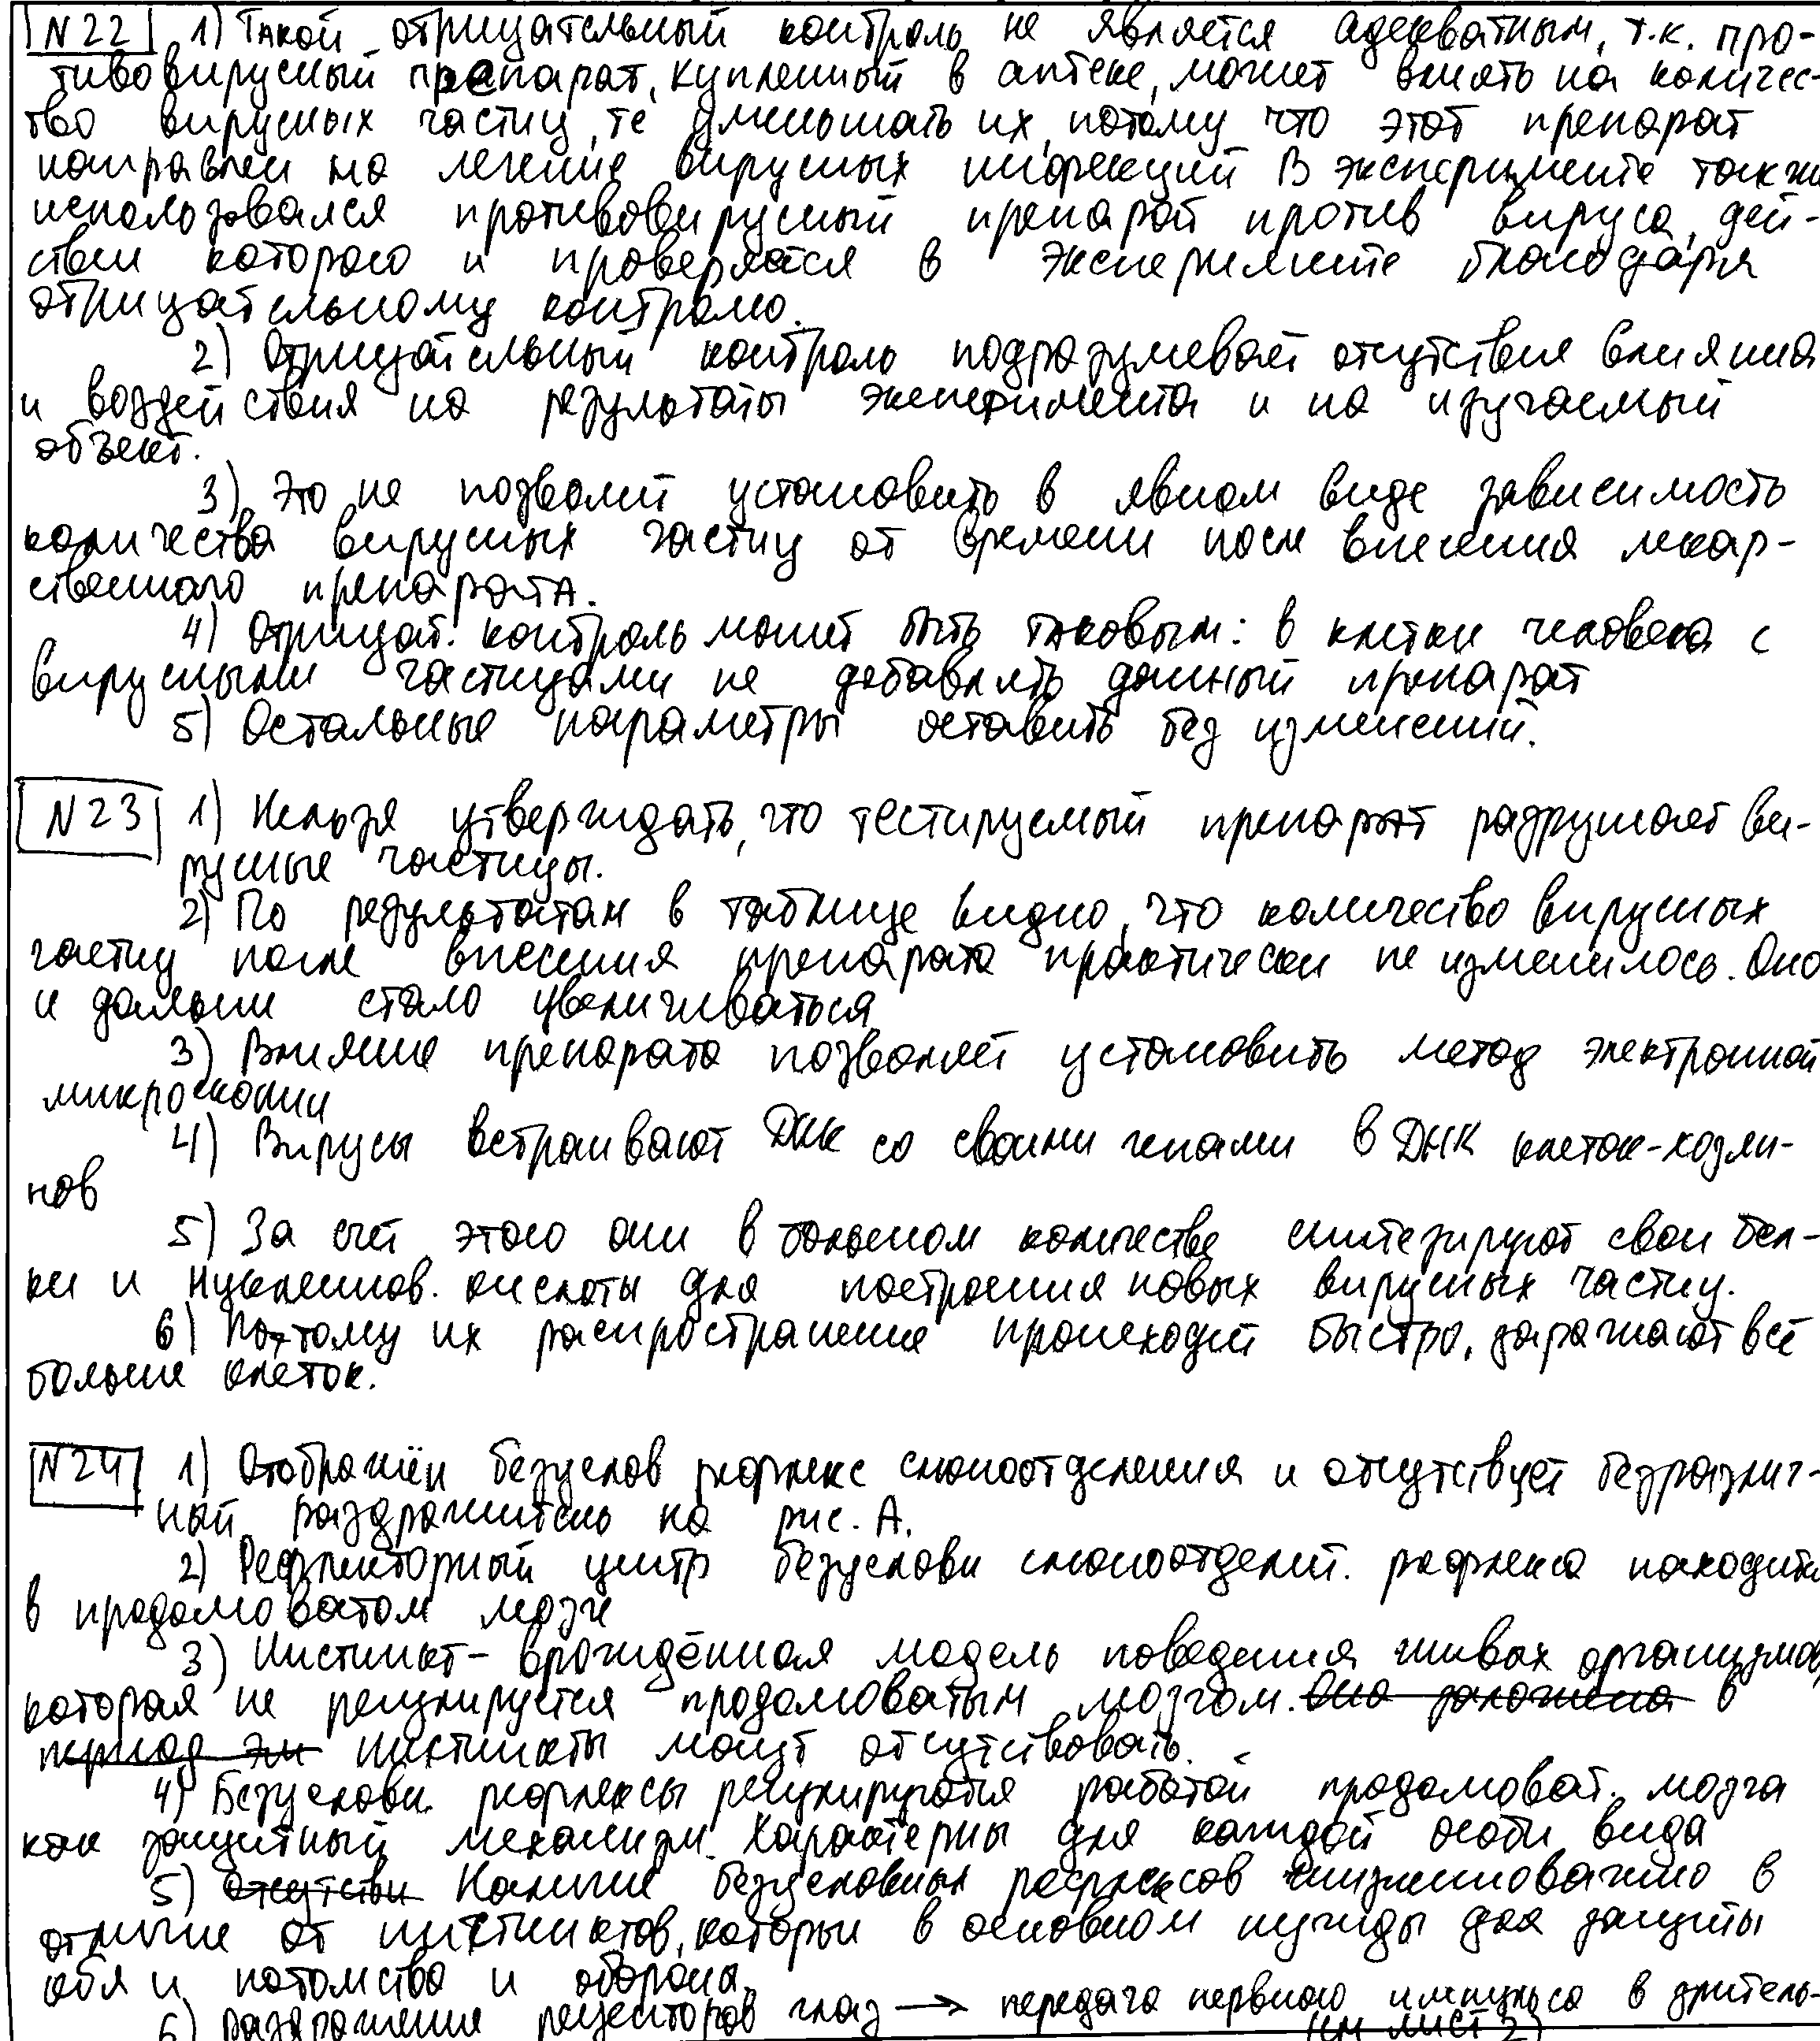 N22 1) Такой отрицательный контроль не является адекватным, т.к. про-
тивовирусный препарат, купленный в аптеке, может влиять на количес-
тво вирусных частиц, те уменьшать их, потому что этот препарат
направлен на лечение вирусных инфекций В эксперименте также
использовался противовирусный препарат против вируса, дей-
ствие которого и проверяется в эксперименте благодаря
отрицательному контролю.
2) Отрицательный контроль подразумевает отсутствие влияния
и воздействия на результаты эксперимента и на изучаемый
объект.
3) Это не позволит установить в явном виде зависимость
количества вирусных частиц от времени после внесения лекар-
ственного препарата.
4) Отрицат. контроль может быть таковым: в клетки человека с
вирусными частицами не добавлять данный препарат
5) Остальные параметры оставить без изменений.
N23 1) Нельзя утверждать, что тестируемый препарат разрушает ви-
русные частицы.
2) По результатам в таблице видно, что количество вирусных
частиц после внесения препарата практически не изменилось. Оно
и дальше стало увеличиваться
3) Влияние препарата позволяет установить метод электронной
микроскопии
4) Вирусы встраивают ДНК со своими генами в ДНК клеток-хозяи-
нов
5) За счёт этого они в большом количестве синтезируют свои бел-
ки и нуклеинов. кислоты для построения новых вирусных частиц.
6) Поэтому их распространение происходит быстро, заражают всё
больше клеток.
N24 1) Отображён безуслов рефлекс слюноотделения и отсутствует безразлич-
ный раздражитель на рис. А.
2) Рефлекторный центр безусловн слюноотделит. рефлекса находится
в продолговатом мозге
3) Инстинкт - врождённая модель поведения живых организмов,
которая не регулируется продолговатым мозгом. Она заложена в
период эм инстинкты могут отсутствовать.
4) Безусловн. рефлексы регулируются работой продолговат. мозга
как защитный механизм. Характерны для каждой особи вида
5) Отсутстви Наличие безусловных рефлексов в
отличие от инстинктов, которые в основном нужны для защиты
себя и потомства и обороны.
6) раздражение рецепторов глаз → передача нервного импульса в зритель-
(см лист 2)